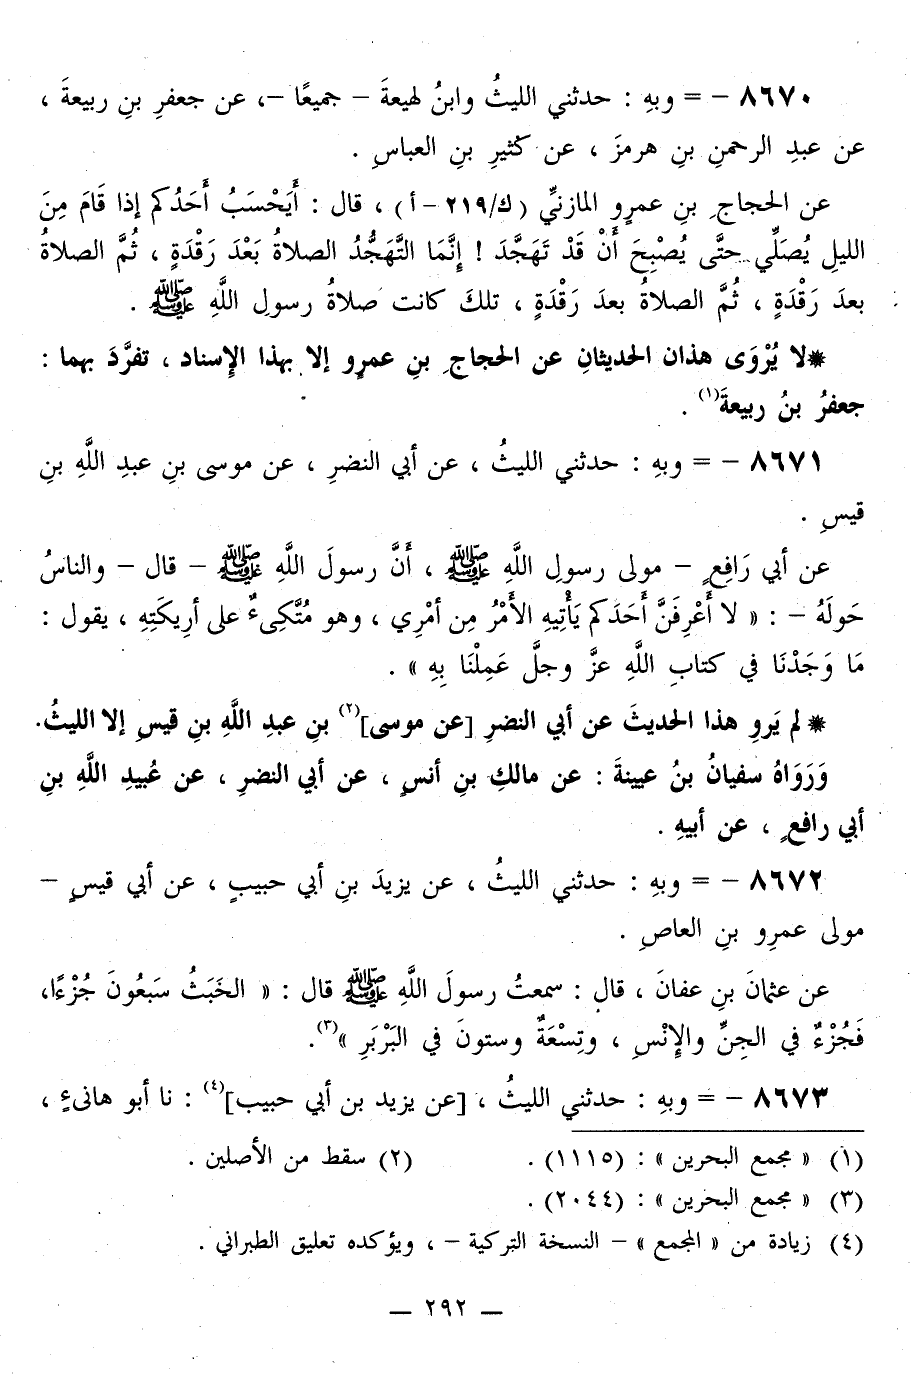 ٨٦٧٠ - = وبهِ : حدثني الليثُ وابنُ لهيعةَ - جميعًا -، عن جعفرِ بنِ ربيعةَ ،
عن عبدِ الرحمنِ بنِ هرمزَ ، عن كثيرِ بنِ العباسِ .
عن الحجاجِ بنِ عمرٍو المازنيِّ (ك/٢١٩ - أ) ، قال : أَيَحْسَبُ أَحَدُكم إذا قَامَ مِنَ
الليلِ يُصَلِّي حتَّى يُصْبِحَ أَنْ قَدْ تَهَجَّدَ ! إِنَّمَا التَّهَجُّدُ الصلاةُ بَعْدَ رَقْدَةٍ ، ثُمَّ الصلاةُ
بعدَ رَقْدَةٍ ، ثُمَّ الصلاةُ بعدَ رَقْدَةٍ ، تلكَ كانت صلاةُ رسولِ اللَّهِ ﷺ .
*لا يُرْوَى هذان الحديثانِ عن الحجاجِ بنِ عمرٍو إلا بهذا الإسناد ، تفرَّدَ بهما :
جعفرُ بنُ ربيعةَ(١) .
٨٦٧١ - = وبهِ : حدثني الليثُ ، عن أبي النضرِ ، عن موسى بنِ عبدِ اللَّهِ بنِ
قيسٍ .
عن أبي رَافِعٍ - مولى رسولِ اللَّهِ ﷺ ، أَنَّ رسولَ اللَّهِ ﷺ - قال - والناسُ
حَولَهُ - : « لا أَعْرِفَنَّ أَحَدَكم يَأْتِيهِ الأَمْرُ مِن أمْرِي ، وهو مُتَّكِىءٌ على أريكَتِهِ ، يقول :
مَا وَجَدْنَا في كتابِ اللَّهِ عزَّ وجلَّ عَمِلْنَا بِهِ » .
* لم يَروِ هذا الحديثَ عن أبي النضرِ [عن موسى](٢) بنِ عبدِ اللَّهِ بنِ قيسٍ إلا الليثُ.
وَرَوَاهُ سفيانُ بنُ عيينةَ : عن مالكِ بنِ أنسٍ ، عن أبي النضرِ ، عن عُبيدِ اللَّهِ بنِ
أبي رافعٍ ، عن أبيهِ .
٨٦٧٢ - = وبهِ : حدثني الليثُ ، عن يزيدَ بنِ أبي حبيبٍ ، عن أبي قيسٍ -
مولى عمرِو بنِ العاصِ .
عن عثمانَ بنِ عفانَ ، قال : سمعتُ رسولَ اللَّهِ ﷺ قال : « الخَبَثُ سَبعُونَ جُزْءًا،
فَجُزْءٌ في الجِنِّ والإِنْسِ ، وتِسْعَةٌ وستونَ في البَرْبَرِ »(٣).
٨٦٧٣ - = وبهِ : حدثني الليثُ ، [عن يزيد بن أبي حبيب](٤) : نا أبو هانىءٍ ،
(١) « مجمع البحرين » : (١١١٥) . (٢) سقط من الأصلين .
(٣) « مجمع البحرين » : (٢٠٤٤) .
(٤) زيادة من « المجمع » - النسخة التركية - ، ويؤكده تعليق الطبراني .
— ٢٩٢ —